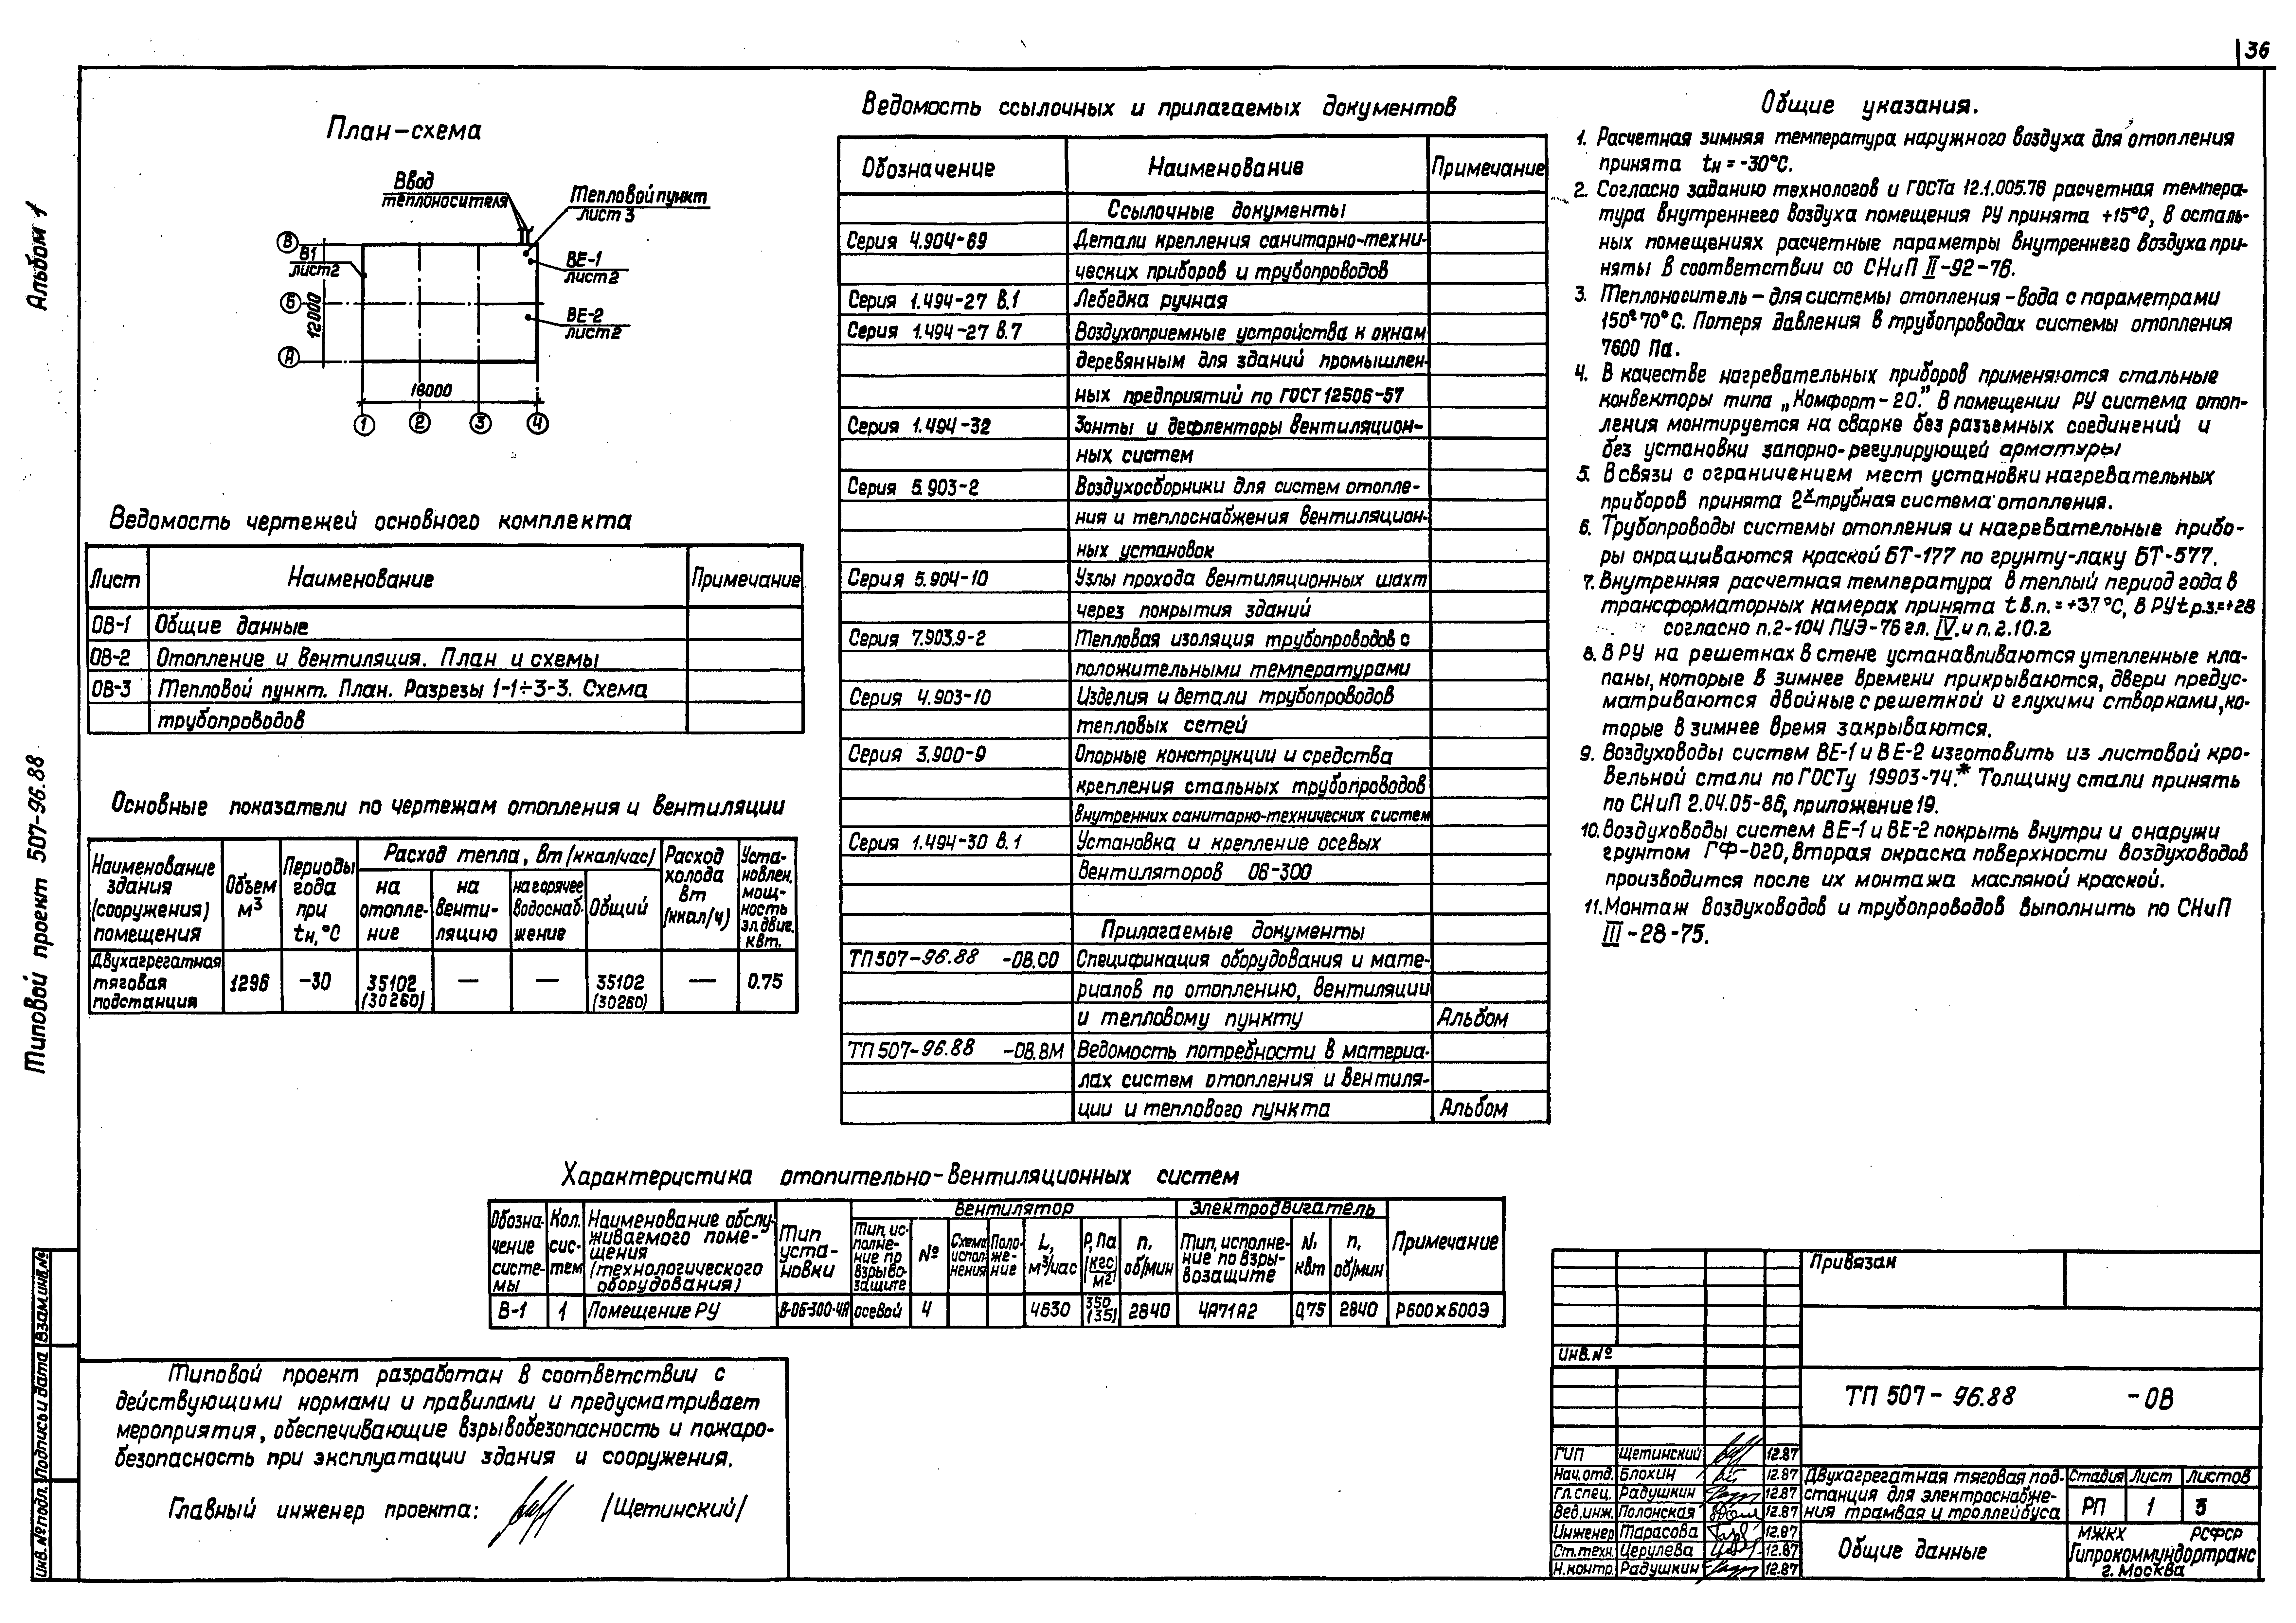 36
Альбом 1
Типовой проект 507-96.88
План-схема
Ввод
теплоносителя
Тепловой пункт
лист 3
В1
лист2
ВЕ-1
лист 2
ВЕ-2
лист2
В
Б
А
12000
18000
1 2 3 4
Ведомость чертежей основного комплекта
Лист Наименование Примечание
ОВ-1 Общие данные
ОВ-2 Отопление и вентиляция. План и схемы
ОВ-3 Тепловой пункт. План. Разрезы 1-1÷3-3. Схема
трубопроводов
Основные показатели по чертежам отопления и вентиляции
Наименование здания (сооружения) помещения
Объем м³
Периоды года при tн,°С
Расход тепла, Вт (ккал/час)
на отопле-ние
на венти-ляцию
на горячее водоснаб-жение
Общий
Расход холода Вт (ккал/ч)
Уста-новлен. мощ-ность эл.двиг. квт.
Двухагрегатная тяговая подстанция 1296 -30 35102 (30260) — — 35102 (30260) — 0.75
Ведомость ссылочных и прилагаемых документов
Обозначение Наименование Примечание
Ссылочные документы
Серия 4.904-69 Детали крепления санитарно-техни-
ческих приборов и трубопроводов
Серия 1.494-27 в.1 Лебедка ручная
Серия 1.494-27 в.7 Воздухоприемные устройства к окнам
деревянным для зданий промышлен-
ных предприятий по ГОСТ 12506-57
Серия 1.494-32 Зонты и дефлекторы вентиляцион-
ных систем
Серия 5.903-2 Воздухосборники для систем отопле-
ния и теплоснабжения вентиляцион-
ных установок
Серия 5.904-10 Узлы прохода вентиляционных шахт
через покрытия зданий
Серия 7.903.9-2 Тепловая изоляция трубопроводов с
положительными температурами
Серия 4.903-10 Изделия и детали трубопроводов
тепловых сетей
Серия 3.900-9 Опорные конструкции и средства
крепления стальных трубопроводов
внутренних санитарно-технических систем
Серия 1.494-30 в.1 Установка и крепление осевых
вентиляторов 06-300
Прилагаемые документы
ТП 507-96.88 -ОВ.СО Спецификация оборудования и мате-
риалов по отоплению, вентиляции
и тепловому пункту Альбом
ТП 507-96.88 -ОВ.ВМ Ведомость потребности в материа-
лах систем отопления и вентиля-
ции и теплового пункта Альбом
Общие указания.
1. Расчетная зимняя температура наружного воздуха для отопления
принята tн = -30°С.
2. Согласно заданию технологов и ГОСТа 12.1.005.76 расчетная темпера-
тура внутреннего воздуха помещения РУ принята +15°С, в осталь-
ных помещениях расчетные параметры внутреннего воздуха при-
няты в соответствии со СНиП II-92-76.
3. Теплоноситель – для системы отопления – вода с параметрами
150°-70°С. Потеря давления в трубопроводах системы отопления
7600 Па.
4. В качестве нагревательных приборов применяются стальные
конвекторы типа „Комфорт-20." В помещении РУ система отоп-
ления монтируется на сварке без разъемных соединений и
без установки запорно-регулирующей арматуры
5. В связи с ограничением мест установки нагревательных
приборов принята 2х трубная система отопления.
6. Трубопроводы системы отопления и нагревательные прибо-
ры окрашиваются краской БТ-177 по грунту-лаку БТ-577.
7. Внутренняя расчетная температура в теплый период года в
трансформаторных камерах принята t в.п. = +37°С, в РУ t р.з.=+28
согласно п.2-104 ПУЭ-76 гл. IV. и п. 2.10.2
8. В РУ на решетках в стене устанавливаются утепленные кла-
паны, которые в зимнее времени прикрываются, двери предус-
матриваются двойные с решеткой и глухими створками, ко-
торые в зимнее время закрываются.
9. Воздуховоды систем ВЕ-1 и ВЕ-2 изготовить из листовой кро-
вельной стали по ГОСТу 19903-74.* Толщину стали принять
по СНиП 2.04.05-86, приложение 19.
10. Воздуховоды систем ВЕ-1 и ВЕ-2 покрыть внутри и снаружи
грунтом ГФ-020, вторая окраска поверхности воздуховодов
производится после их монтажа масляной краской.
11. Монтаж воздуховодов и трубопроводов выполнить по СНиП
III-28-75.
Характеристика отопительно-вентиляционных систем
Обозна-чение систе-мы
Кол. сис-тем
Наименование обслу-живаемого поме-щения (технологического оборудования)
Тип уста-новки
Вентилятор
Тип, ис-полне-ние по взрыво-защите
№
Схема испол-нения
Поло-же-ние
L, м³/час
Р, Па (кгс/м²)
n, об/мин
Электродвигатель
Тип, исполне-ние по взры-возащите
N, квт
n, об/мин
Примечание
В-1 1 Помещение РУ В-06-300-4А осевой 4 4630 350 (35) 2840 4А71А2 0,75 2840 Р600х600Э
Типовой проект разработан в соответствии с
действующими нормами и правилами и предусматривает
мероприятия, обеспечивающие взрывобезопасность и пожаро-
безопасность при эксплуатации здания и сооружения.
Главный инженер проекта: /Щетинский/
Инв.№ подл. Подпись и дата Взам.инв.№
Привязан
Инв.№
ТП 507- 96.88 -ОВ
ГИП Щетинский 12.87
Нач.отд. Блохин 12.87
Гл.спец. Радушкин 12.87
Вед.инж. Полонская 12.87
Инженер Тарасова 12.87
Ст.техн. Церулева 12.87
Н.контр. Радушкин 12.87
Двухагрегатная тяговая под-
станция для электроснабже-
ния трамвая и троллейбуса
Стадия Лист Листов
РП 1 3
Общие данные
МЖКХ РСФСР
Гипрокоммундортранс
г. Москва